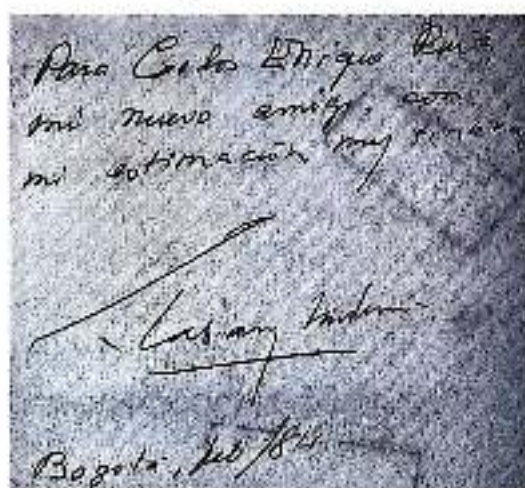 Para Carlos Enrique Ruiz
mi nuevo amigo, con
mi estimación muy sincera
Bogotá, feb/84